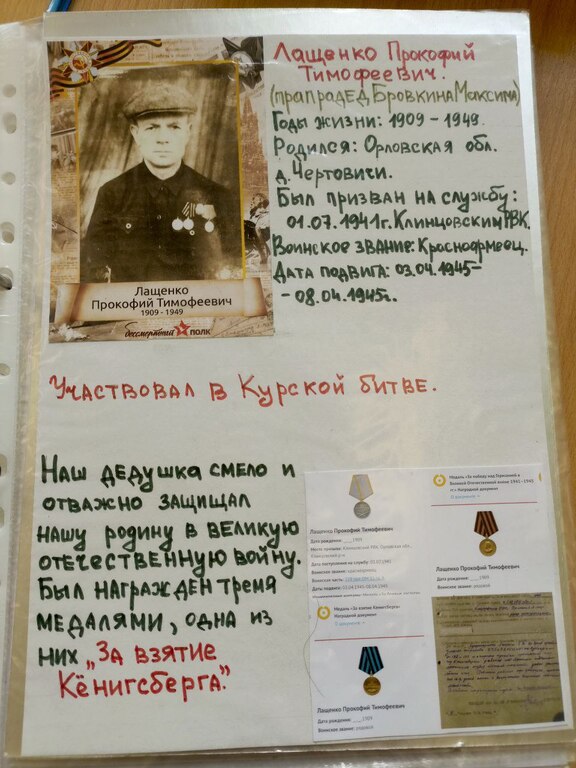 Лащенко Прокофий
Тимофеевич.
(прапрадед Бровкина Максима)
Годы жизни: 1909 - 1949.
Родился: Орловская обл.
д. Чертовичи.
Был призван на службу:
01.07.1941г. Клинцовским РВК.
Воинское звание: Красноармеец.
Дата подвига: 03.04.1945-
- 08.04.1945г.
Лащенко
Прокофий Тимофеевич
1909 - 1949
бессмертный полк
Участвовал в Курской битве.
Наш дедушка смело и
отважно защищал
нашу родину в великую
отечественную войну.
Был награжден тремя
медалями, одна из
них „За взятие
Кёнигсберга."
Лащенко Прокофий Тимофеевич
Дата рождения: __.__.1909
Место призыва: Клинцовский РВК, Орловская обл.,
Дата поступления на службу:
Воинское звание: красноармеец
Воинская часть:
Даты подвига: 03.04.1945-08.04.1945
Медаль «За победу над Германией в
Великой Отечественной войне 1941–1945
гг.» Наградной документ
Лащенко Прокофий Тимофеевич
Дата рождения: __.__.1909
Воинское звание: рядовой
Медаль «За взятие Кенигсберга»
Наградной документ
Лащенко Прокофий Тимофеевич
Дата рождения: __.__.1909
Воинское звание: рядовой